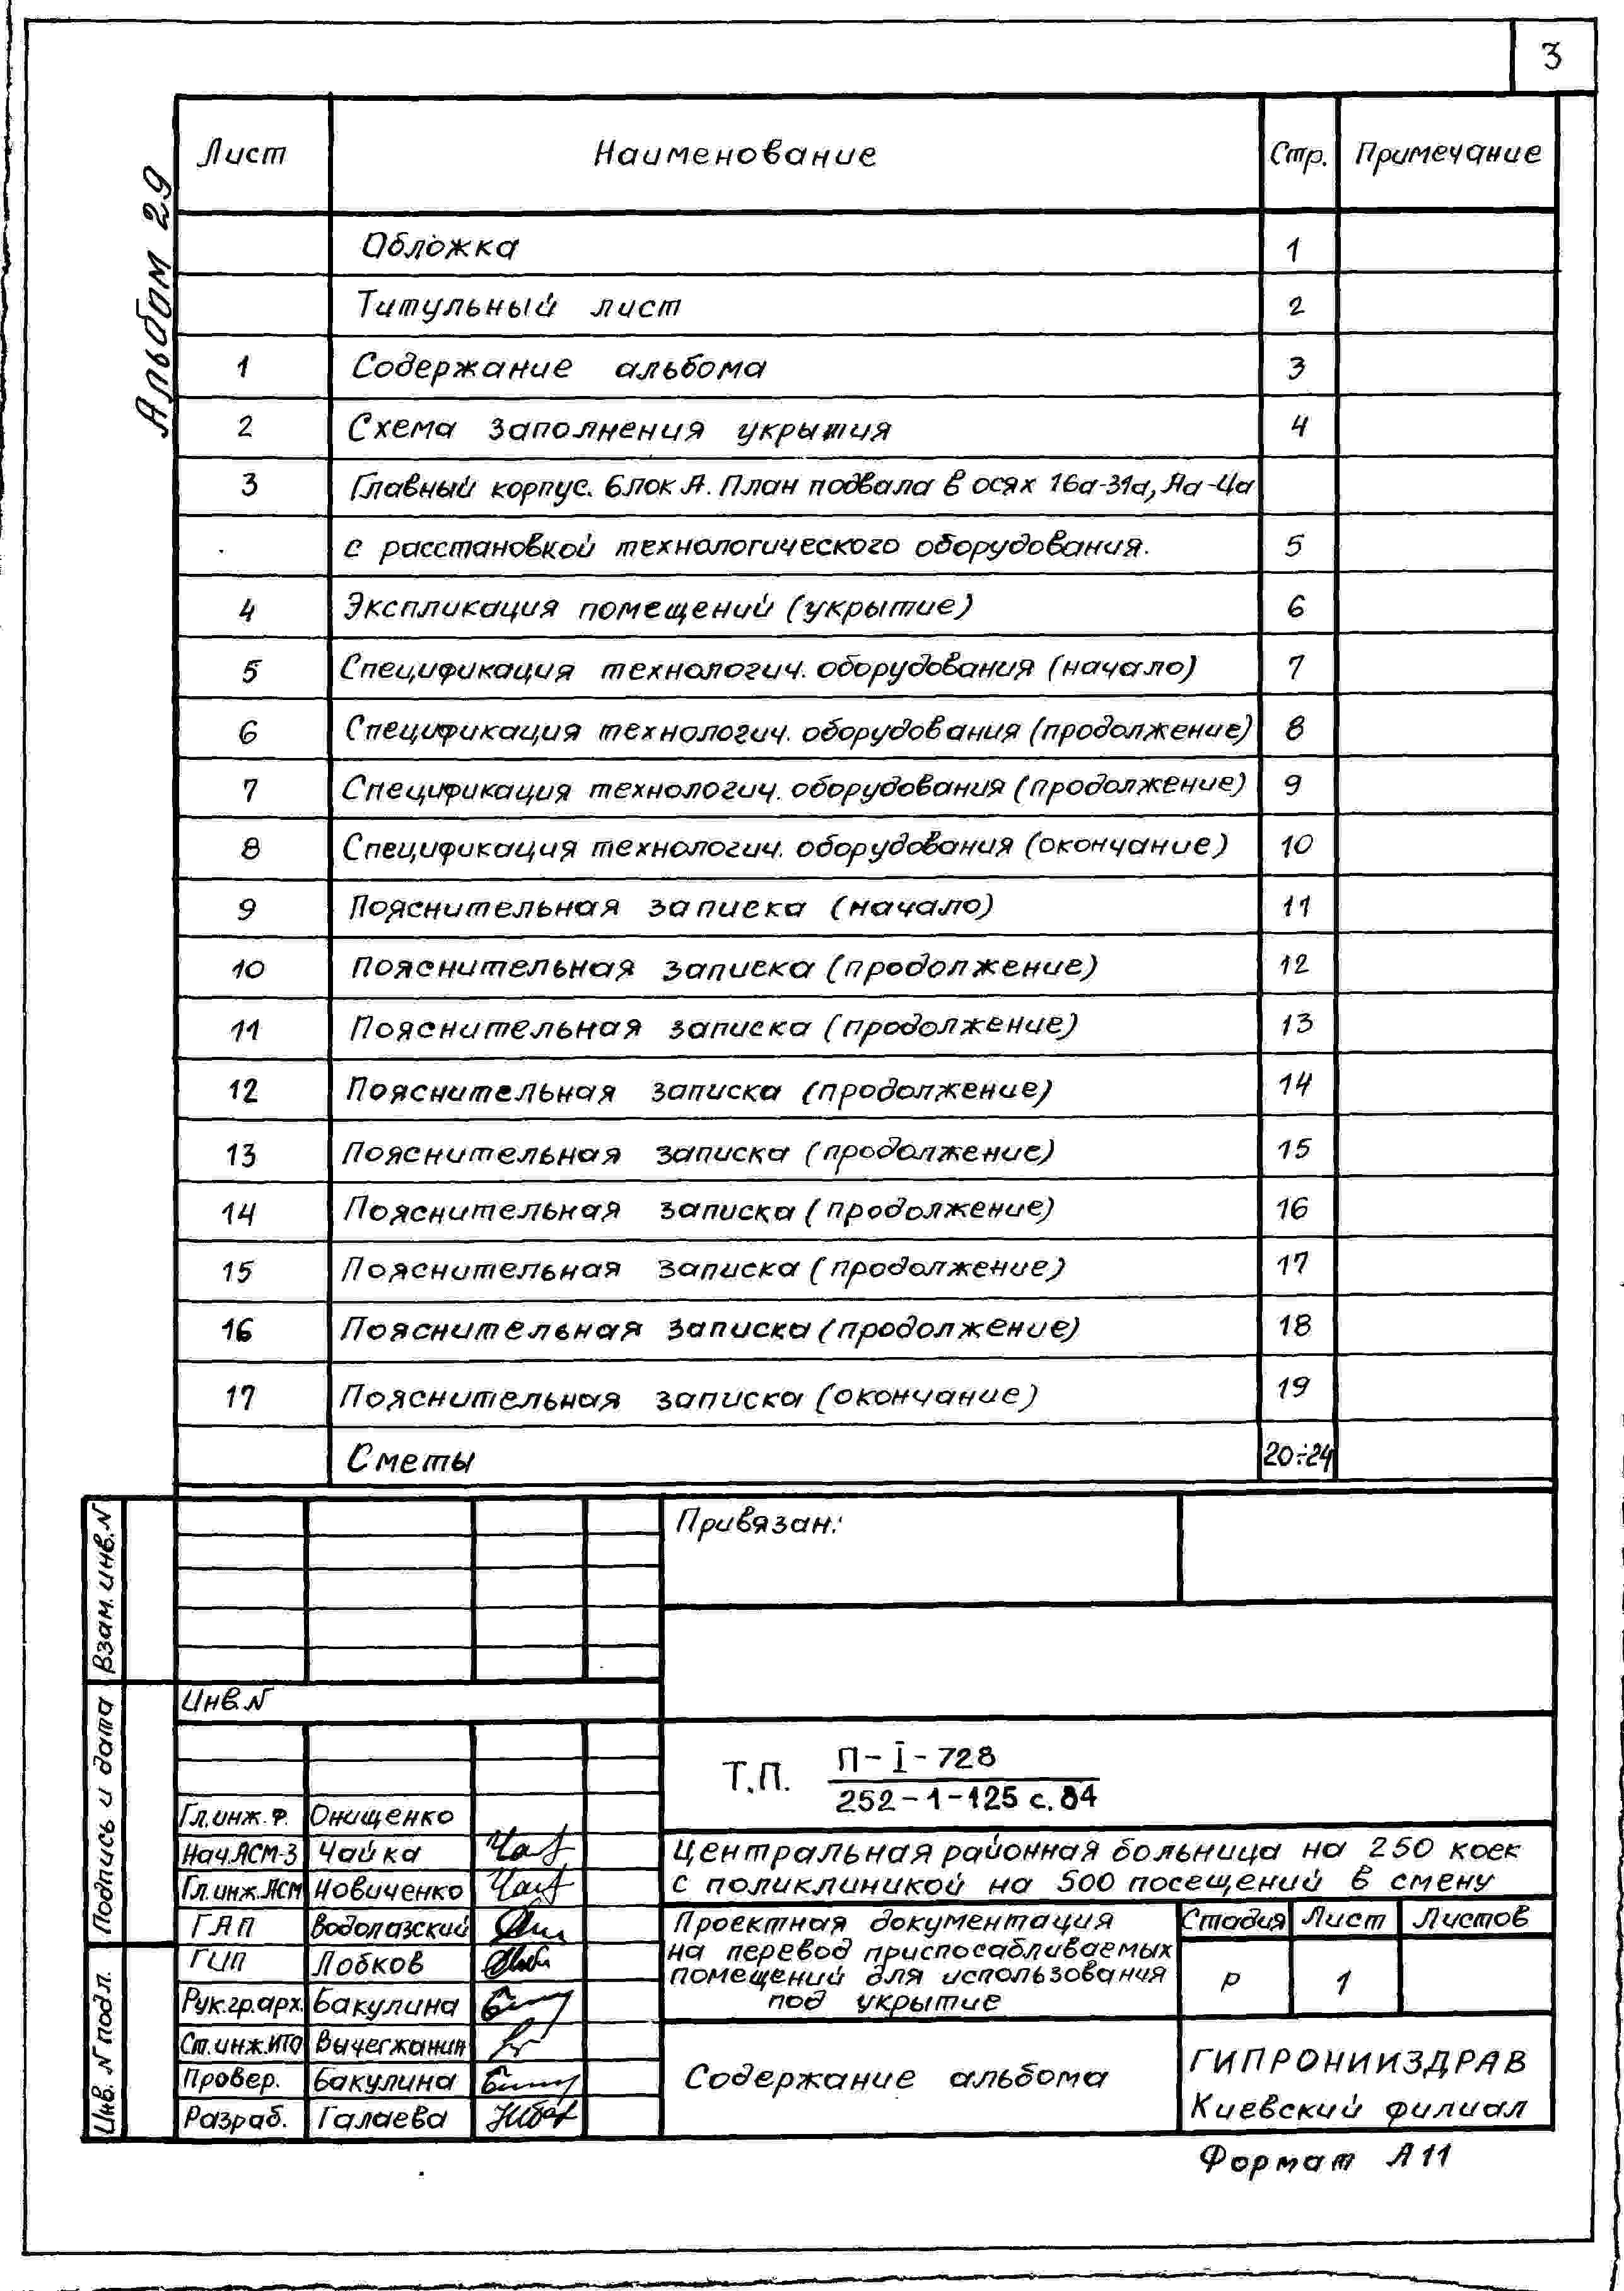 3
Альбом 29
Лист Наименование Стр. Примечание
Обложка 1
Титульный лист 2
1 Содержание альбома 3
2 Схема заполнения укрытия 4
3 Главный корпус. Блок А. План подвала в осях 16а-31а, Аа-Ца
с расстановкой технологического оборудования. 5
4 Экспликация помещений (укрытие) 6
5 Спецификация технологич. оборудования (начало) 7
6 Спецификация технологич. оборудования (продолжение) 8
7 Спецификация технологич. оборудования (продолжение) 9
8 Спецификация технологич. оборудования (окончание) 10
9 Пояснительная записка (начало) 11
10 Пояснительная записка (продолжение) 12
11 Пояснительная записка (продолжение) 13
12 Пояснительная записка (продолжение) 14
13 Пояснительная записка (продолжение) 15
14 Пояснительная записка (продолжение) 16
15 Пояснительная записка (продолжение) 17
16 Пояснительная записка (продолжение) 18
17 Пояснительная записка (окончание) 19
Сметы 20÷24
Взам. инв. N
Подпись и дата
Инв. N подл.
Привязан:
Инв. N
Т.П. П-I-728
252-1-125 с. 84
Гл. инж. ф. Онищенко
Нач. АСМ-3 Чайка
Гл. инж. АСМ Новиченко
ГАП Водолазский
ГИП Лобков
Рук. гр. арх. Бакулина
Ст. инж. ИТО Вычегжанин
Провер. Бакулина
Разраб. Галаева
Центральная районная больница на 250 коек
с поликлиникой на 500 посещений в смену
Проектная документация
на перевод приспосабливаемых
помещений для использования
под укрытие
Стадия Лист Листов
Р 1
Содержание альбома
ГИПРОНИИЗДРАВ
Киевский филиал
Формат А11